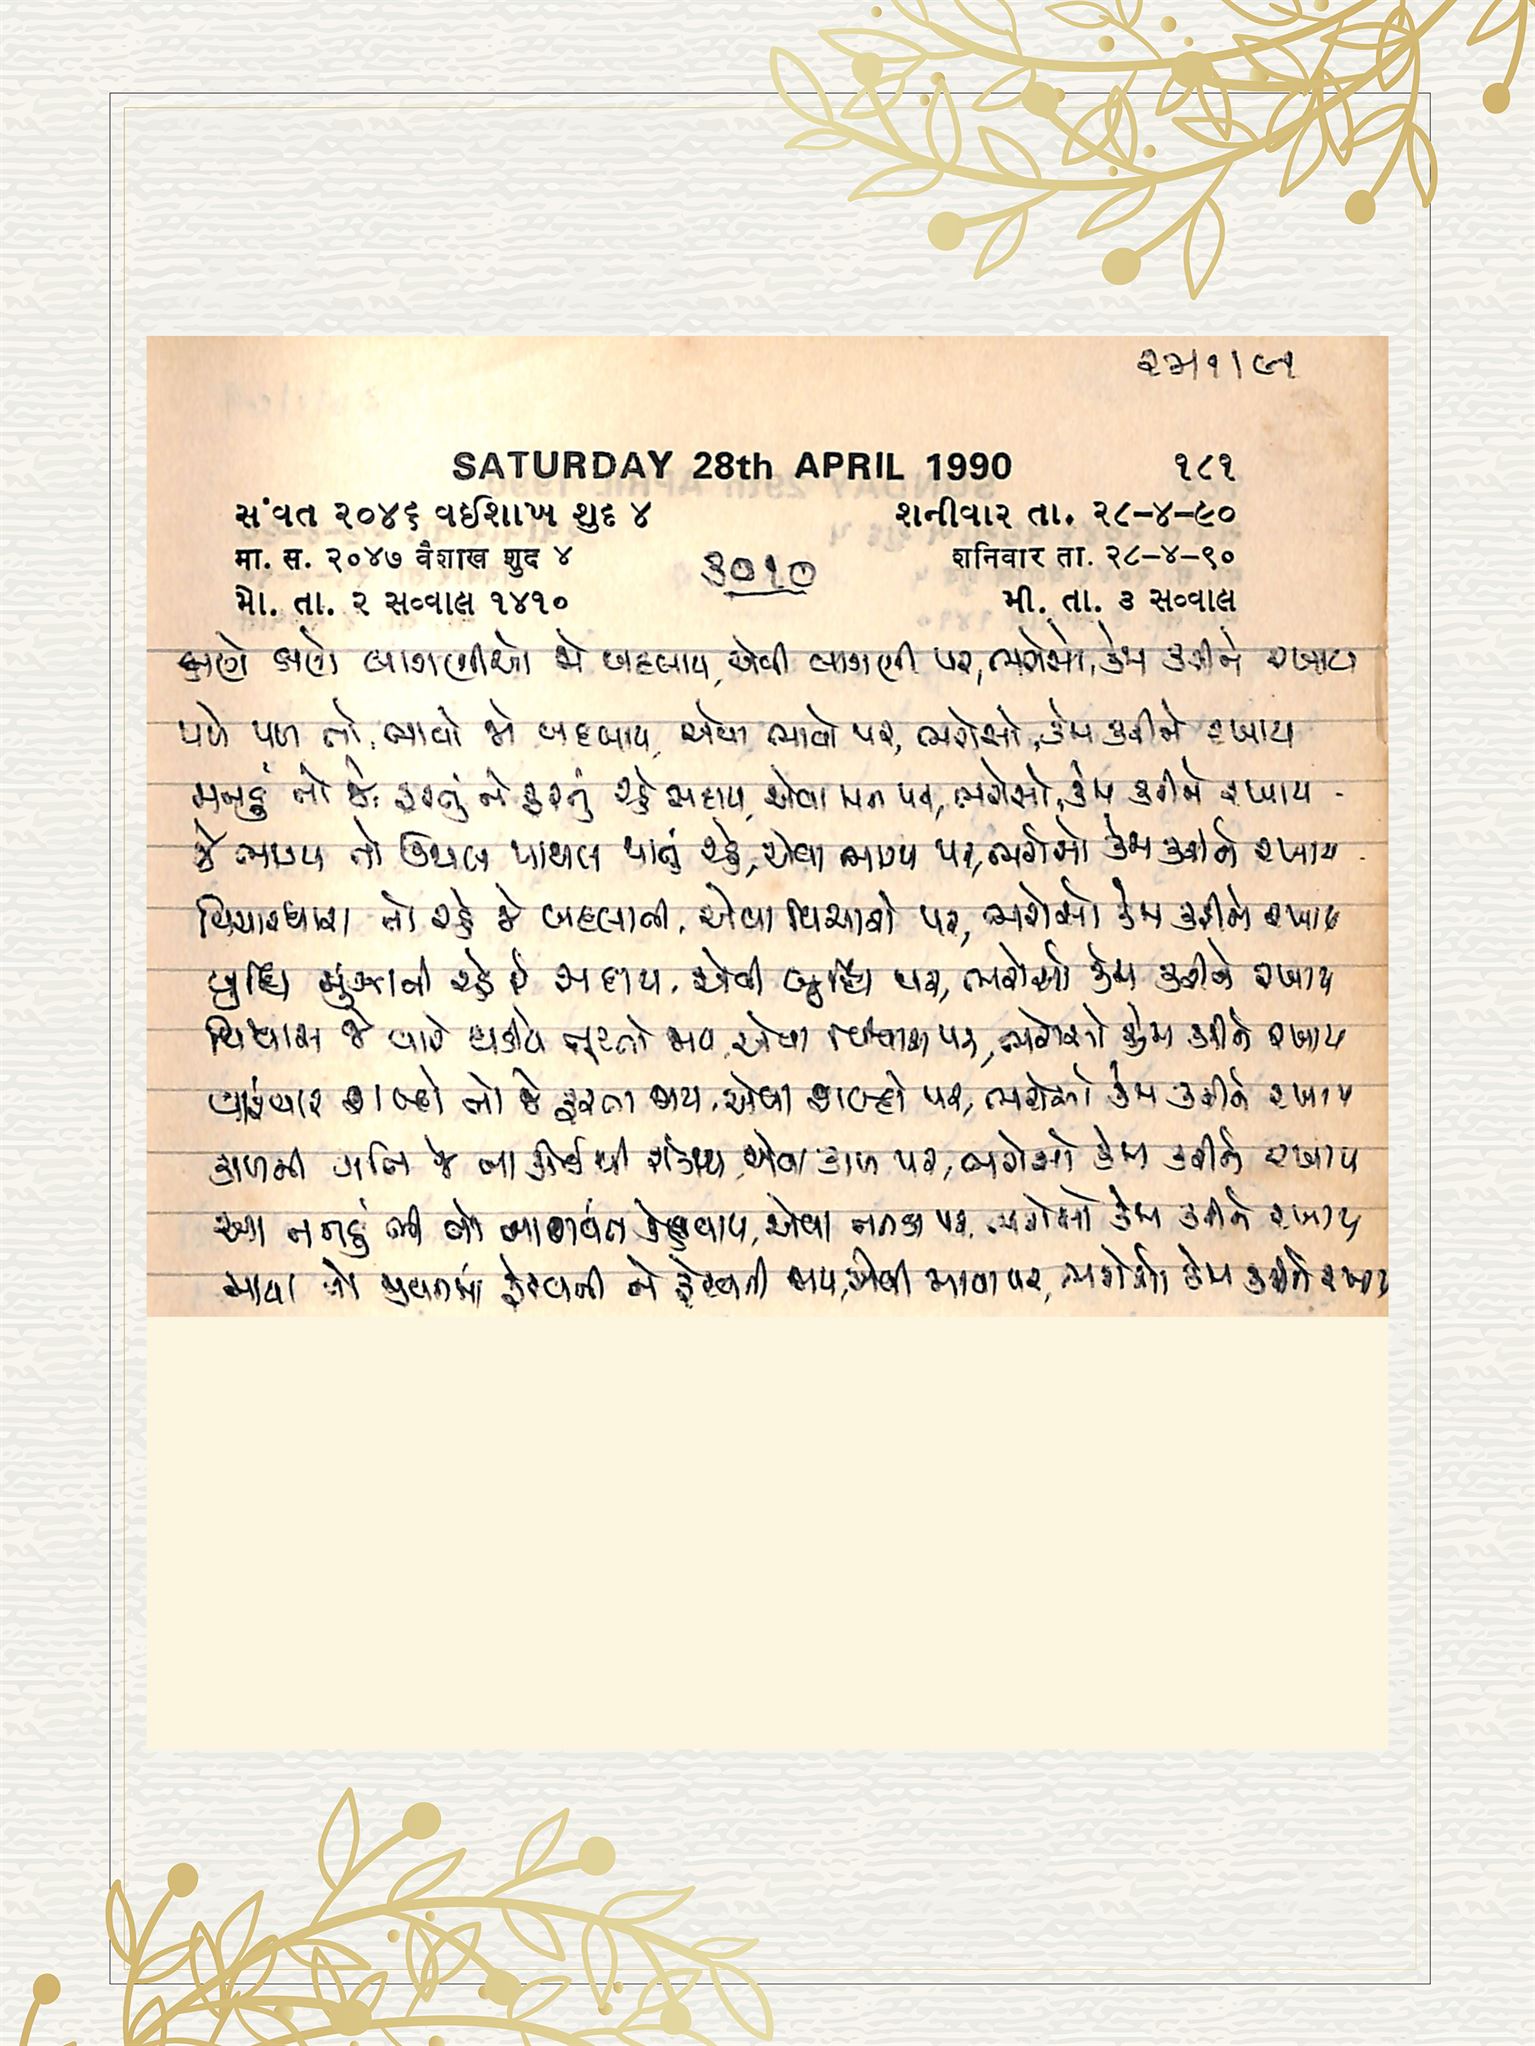 SATURDAY 28th APRIL 1990 ૧૮૧
સંવત ૨૦૪૬ વઈશાખ શુદ ૪ શનીવાર તા. ૨૮-૪-૯૦
मा. स. २०४७ वैशाख शुद ४ शनिवार ता. २८-४-९०
મો. તા. ૨ સવ્વાલ ૧૪૧૦ મી. તા. ૩ સવ્વાલ
૩૦૧૦
ક્ષણે ક્ષણે લાગણીઓ જે બદલાય, એવી લાગણી પર, ભરોસો, કેમ કરીને રખાય
પળે પળ તો, ભાવો જો બદલાય, એવા ભાવો પર, ભરોસો, કેમ કરીને રખાય
મનડું તો જે, ફરતું ને ફરતું રહે સદાય, એવા મન પર, ભરોસો, કેમ કરીને રખાય
જે ભાગ્ય તો ઊથલ પાથલ થાતું રહે, એવા ભાગ્ય પર, ભરોસો કેમ કરીને રખાય
વિચારધારા તો રહે જે બદલાતી, એવા વિચારો પર, ભરોસો કેમ કરીને રખાય
બુદ્ધિ મુંઝાતી રહે સદાય, એવી બુદ્ધિ પર, ભરોસો કેમ કરીને રખાય
વિશ્વાસ જે વારે ઘડીએ તૂટતો જાય, એવા વિશ્વાસ પર, ભરોસો કેમ કરીને રખાય
વારંવાર શબ્દો તો જે ફરતા જાય, એવા શબ્દો પર, ભરોસો કેમ કરીને રખાય
કાળની ગતિ જે ના કોઈથી રોકાય, એવા કાળ પર, ભરોસો કેમ કરીને રખાય
આ તનડું તો નાશવંત કહેવાય, એવા તનડા પર, ભરોસો કેમ કરીને રખાય
માયા તો જીવનમાં ફેરવતી ને ફેરવતી જાય, એવી માયા પર, ભરોસો કેમ કરીને રખાય